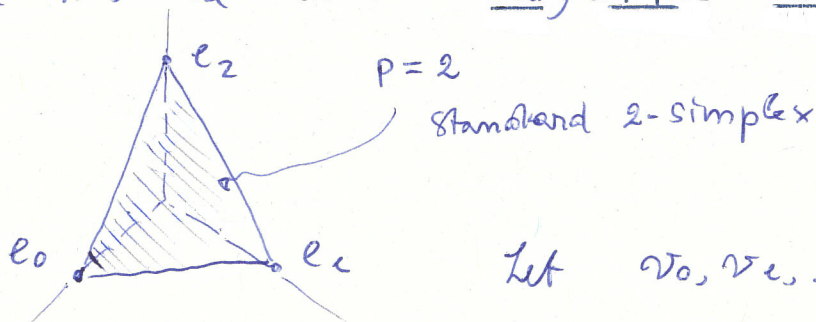 e₂
p = 2
standard 2-simplex
e₀
e₁
Let v₀, v₁, .